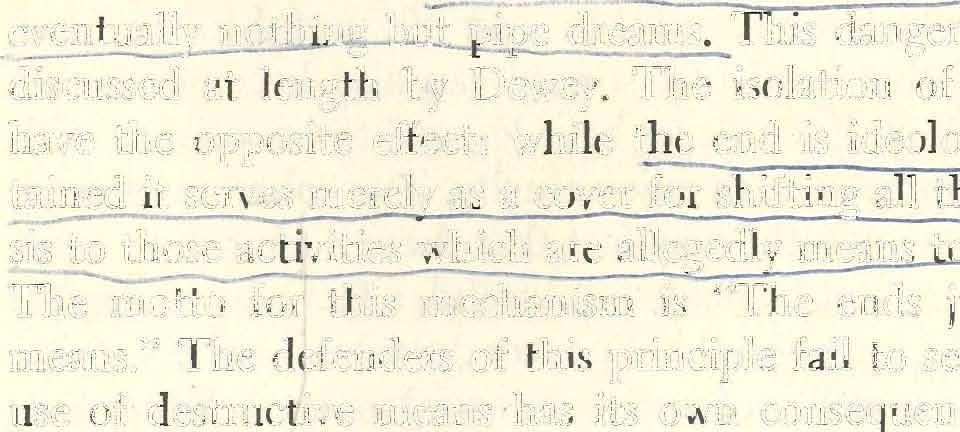 eventually nothing but pipe dreams. This danger
discussed at length by Dewey. The isolation of
have the opposite effect: while the end is ideolo
tained it serves merely as a cover for shifting all th
sis to those activities which are allegedly means to
The motto for this mechanism is “The ends j
means.” The defenders of this principle fail to se
use of destructive means has its own consequen